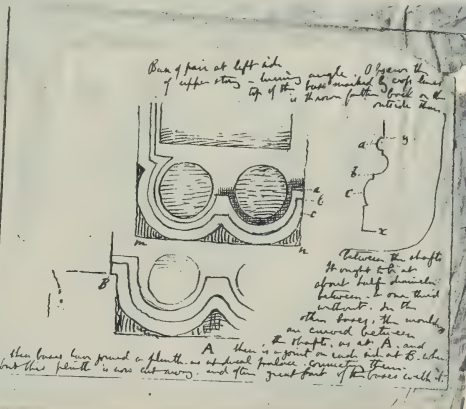 Base of pair at left side
of upper story - turning angle. Observe the
top of the base marked by cross lines
is thrown farther back on the
outside than
a
b
c
m
n
a
y
b
c
x
between the shafts
It ought to be at
about half diameter
between - one third
without. In the
other bases, the moulding
are curved between
the shafts, as at A. and
B
A
there is a joint on each side at B. when
these bases have joined a plinth as
connecting them.
but this plinth is now cut away. and often great part of the bases with it.